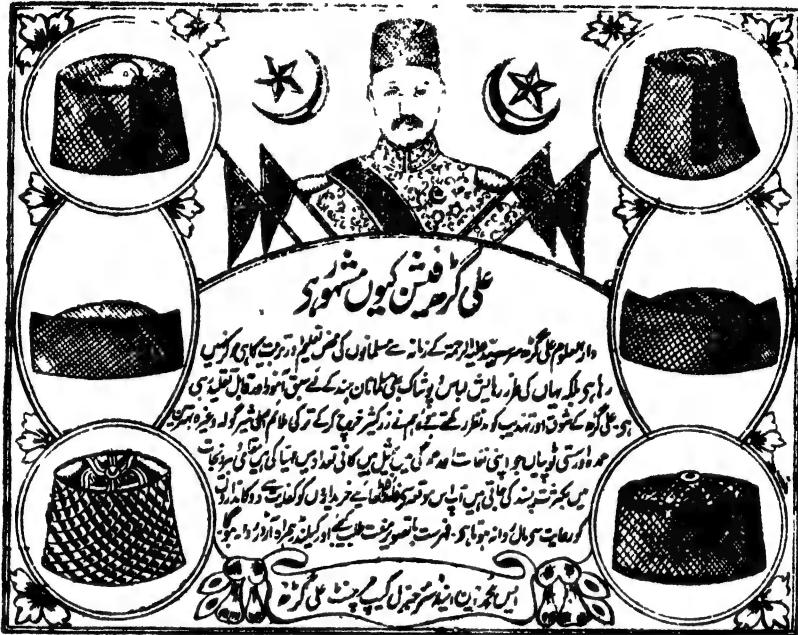 علی گڑھ فیشن کیوں مشہور ہی
دارالعلوم علی گڑھ سرسید علیہ الرحمۃ کے زمانہ سے مسلمانوں کی محض تعلیم و تربیت ہی کا مرکز نہیں
رہا ہی بلکہ یہاں کی طرز رہایش لباس و پوشاک بھی مسلمانان ہند کے لئے سبق آموز اور قابل تقلید ہی
ہی۔ علی گڑھ کے شوق اور تہذیب کو مدنظر رکھتے ہوئے ہم نے زر کثیر خرچ کرکے ترکی
عمدہ اور سستی ٹوپیاں جو اپنی نفاست اور عمدگی میں بے مثل ہیں کافی تعداد میں مہیا کی ہیں
میں بکثرت پسند کی جاتی ہیں آپ اس موقعہ سے خریداروں کو کفایت سے دوکانداروں
کو رعایت سی مال روانہ ہوتا ہی۔ فہرست باتصویر مفت طلب کیجئے اور کیلنڈر ہمراہ آرڈر روانہ ہوگا۔
ایس محمد زین اینڈ سنز جنرل کیپ مرچنٹ علی گڑھ